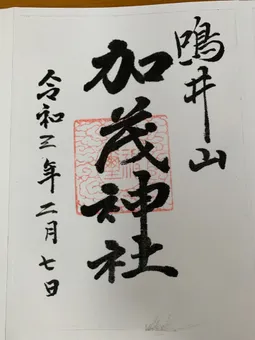 鴫井山
加茂神社
令和三年二月七日